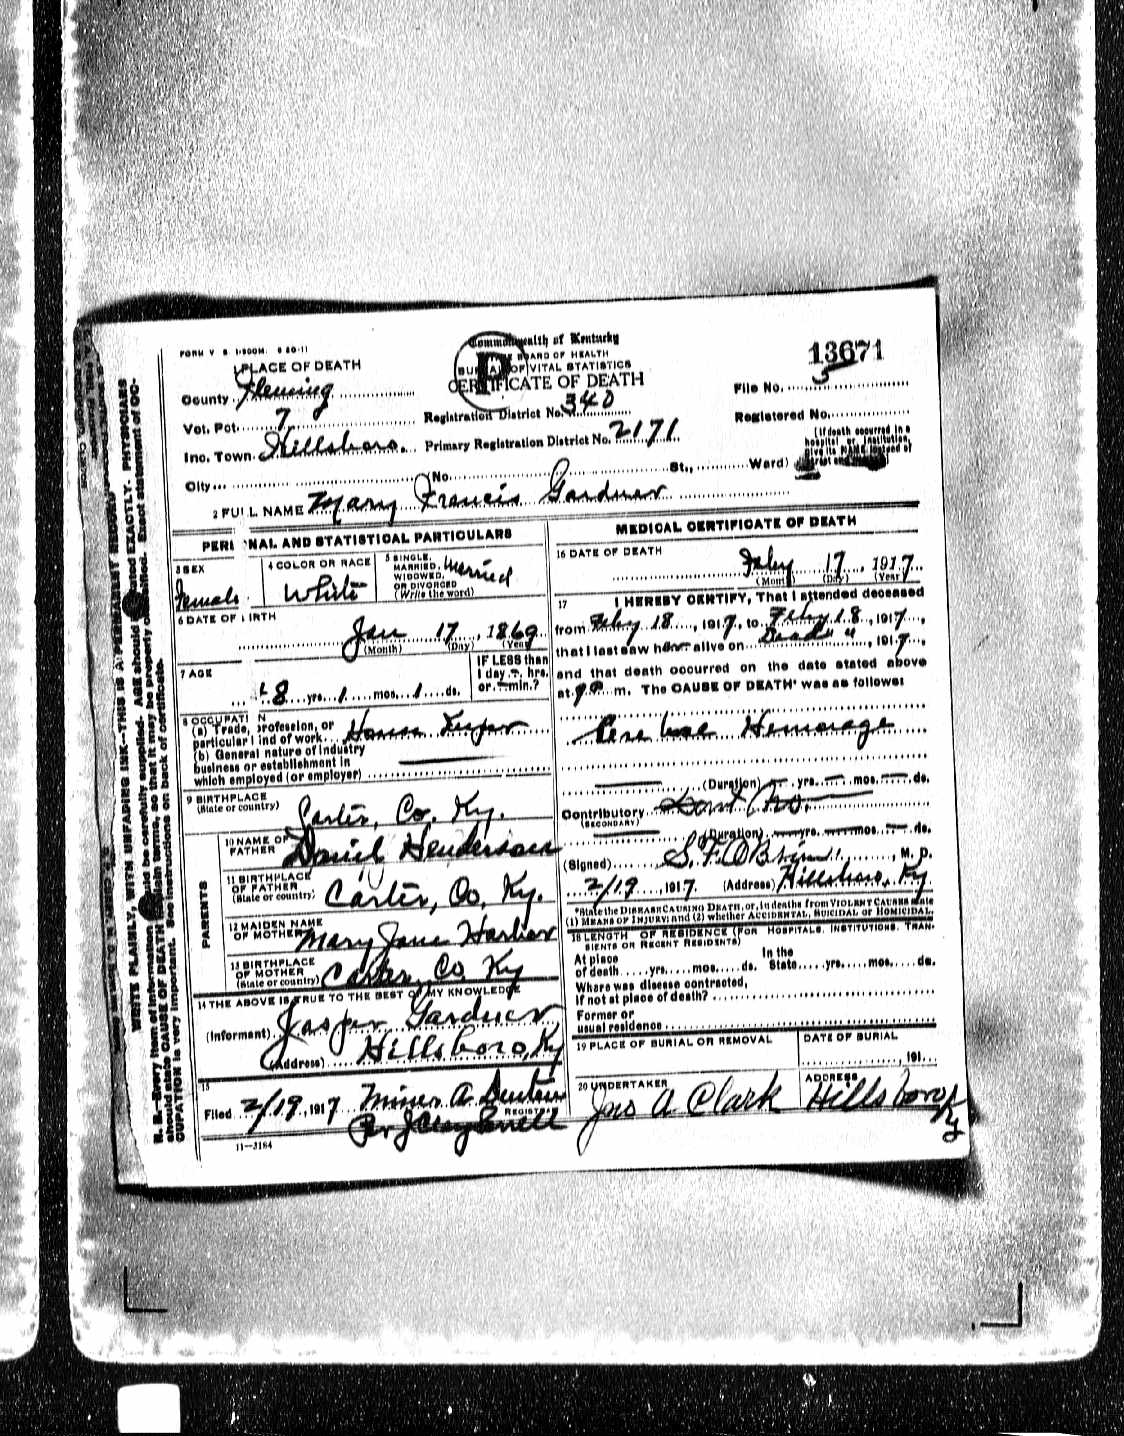 FORM V. S. 1-500M. 9 20-11
Commonwealth of Kentucky
BOARD OF HEALTH
BUREAU OF VITAL STATISTICS
CERTIFICATE OF DEATH
13671
1 PLACE OF DEATH
County Fleming
File No. 5
Vot. Pct. 7
Registration District No. 340
Registered No.
Inc. Town Hillsboro.
Primary Registration District No. 2171
(If death occurred in a
hospital or institution,
give its NAME instead of
City
(No. St., Ward)
2 FULL NAME Mary Francis Gardner
PERSONAL AND STATISTICAL PARTICULARS
3 SEX
Female
4 COLOR OR RACE
White
5 SINGLE,
MARRIED,
WIDOWED,
OR DIVORCED
(Write the word)
Married
6 DATE OF BIRTH
Jan 17, 1869
(Month) (Day) (Year)
7 AGE
48 yrs. 1 mos. 1 ds.
IF LESS than
1 day hrs.
or min.?
8 OCCUPATION
(a) Trade, profession, or
particular kind of work House Keeper
(b) General nature of industry
business or establishment in
which employed (or employer)
9 BIRTHPLACE
(State or country)
Carter, Co. Ky.
PARENTS
10 NAME OF
FATHER
Daniel Henderson
11 BIRTHPLACE
OF FATHER
(State or country)
Carter, Co, Ky.
12 MAIDEN NAME
OF MOTHER Mary Jane
13 BIRTHPLACE
OF MOTHER
(State or country) Carter, Co Ky
14 THE ABOVE IS TRUE TO THE BEST OF MY KNOWLEDGE
(Informant) Jasper Gardner
(Address) Hillsboro, Ky
15
Filed 2/19, 1917 Miner A
REGISTRAR
Per J Clay
11-3184
MEDICAL CERTIFICATE OF DEATH
16 DATE OF DEATH
Feby 17, 1917
(Month) (Day) (Year)
17 I HEREBY CERTIFY, That I attended deceased
from Feby 18, 1917, to Feby 18, 1917,
that I last saw her alive on Dead ", 1917,
and that death occurred on the date stated above
at 9 P m. The CAUSE OF DEATH* was as follows:
Hemorage
(Duration) yrs. mos. ds.
Contributory
(SECONDARY)
(Duration) yrs. mos. ds.
(Signed) S. F. O'Brien, M. D.
2/19 1917. (Address) Hillsboro, Ky
*State the DISEASE CAUSING DEATH, or, in deaths from VIOLENT CAUSES state
(1) MEANS OF INJURY; and (2) whether ACCIDENTAL, SUICIDAL or HOMICIDAL.
18 LENGTH OF RESIDENCE (FOR HOSPITALS, INSTITUTIONS, TRAN-
SIENTS OR RECENT RESIDENTS)
At place In the
of death yrs. mos. ds. State yrs. mos. ds.
Where was disease contracted,
If not at place of death?
Former or
usual residence
19 PLACE OF BURIAL OR REMOVAL
DATE OF BURIAL
191
20 UNDERTAKER
Jno A Clark
ADDRESS
Hillsboro Ky
WRITE PLAINLY, WITH UNFADING INK—THIS IS A PERMANENT RECORD